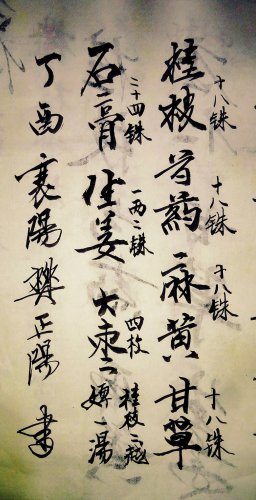 桂枝 十八铢 芍药 十八铢 麻黄 十八铢 甘草 十八铢
石膏 二十四铢 生姜 一两二铢 大枣 四枚 桂枝二越婢一湯
丁酉 襄陽 樊正陽 書